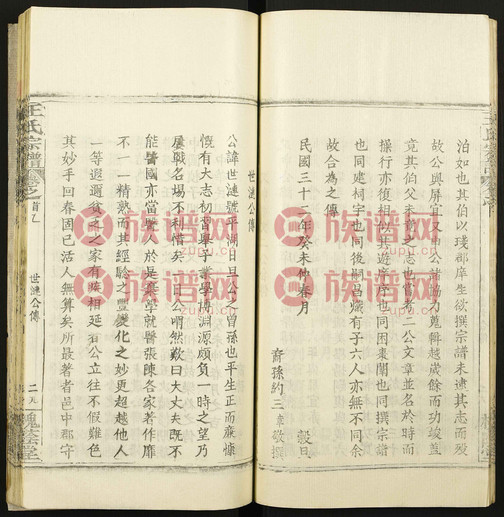 泊如也其伯以琖郡庠生欲撰宗譜未遂其志而歿
故公與屏宜又申公諸協力蒐輯越歲餘而功竣蓋
竟其伯父未竟之志也當時二公文章並名於時而
操行亦復相似其遊庠序也同因棗闈也同撰宗譜
也同建祠宇也同後嗣昌熾有子六人亦無不同余
故合為之傳
民國三十二年癸未仲春月 穀旦
裔孫約三 敬撰
世漣公傳
公諱世漣號平湖日旦公之曾孫也平生正而廉慷
慨有大志初習舉子業學博淵源頗負一時之望乃
屢戰名場不利惜矣 公喟然歎曰大丈夫既不
能醫國亦當醫人於是棄學就醫張陳各家著作靡
不一一精熟而其經驗之豐變化之妙更超越他人
一等遐邇貧乏之家有疾相延者公立往不假難色
其妙手回春固已活人無算矣所最著者邑中郡守
王氏宗譜
卷之首乙
世漣公傳
二九
槐蔭堂
族谱网
zupu.cn